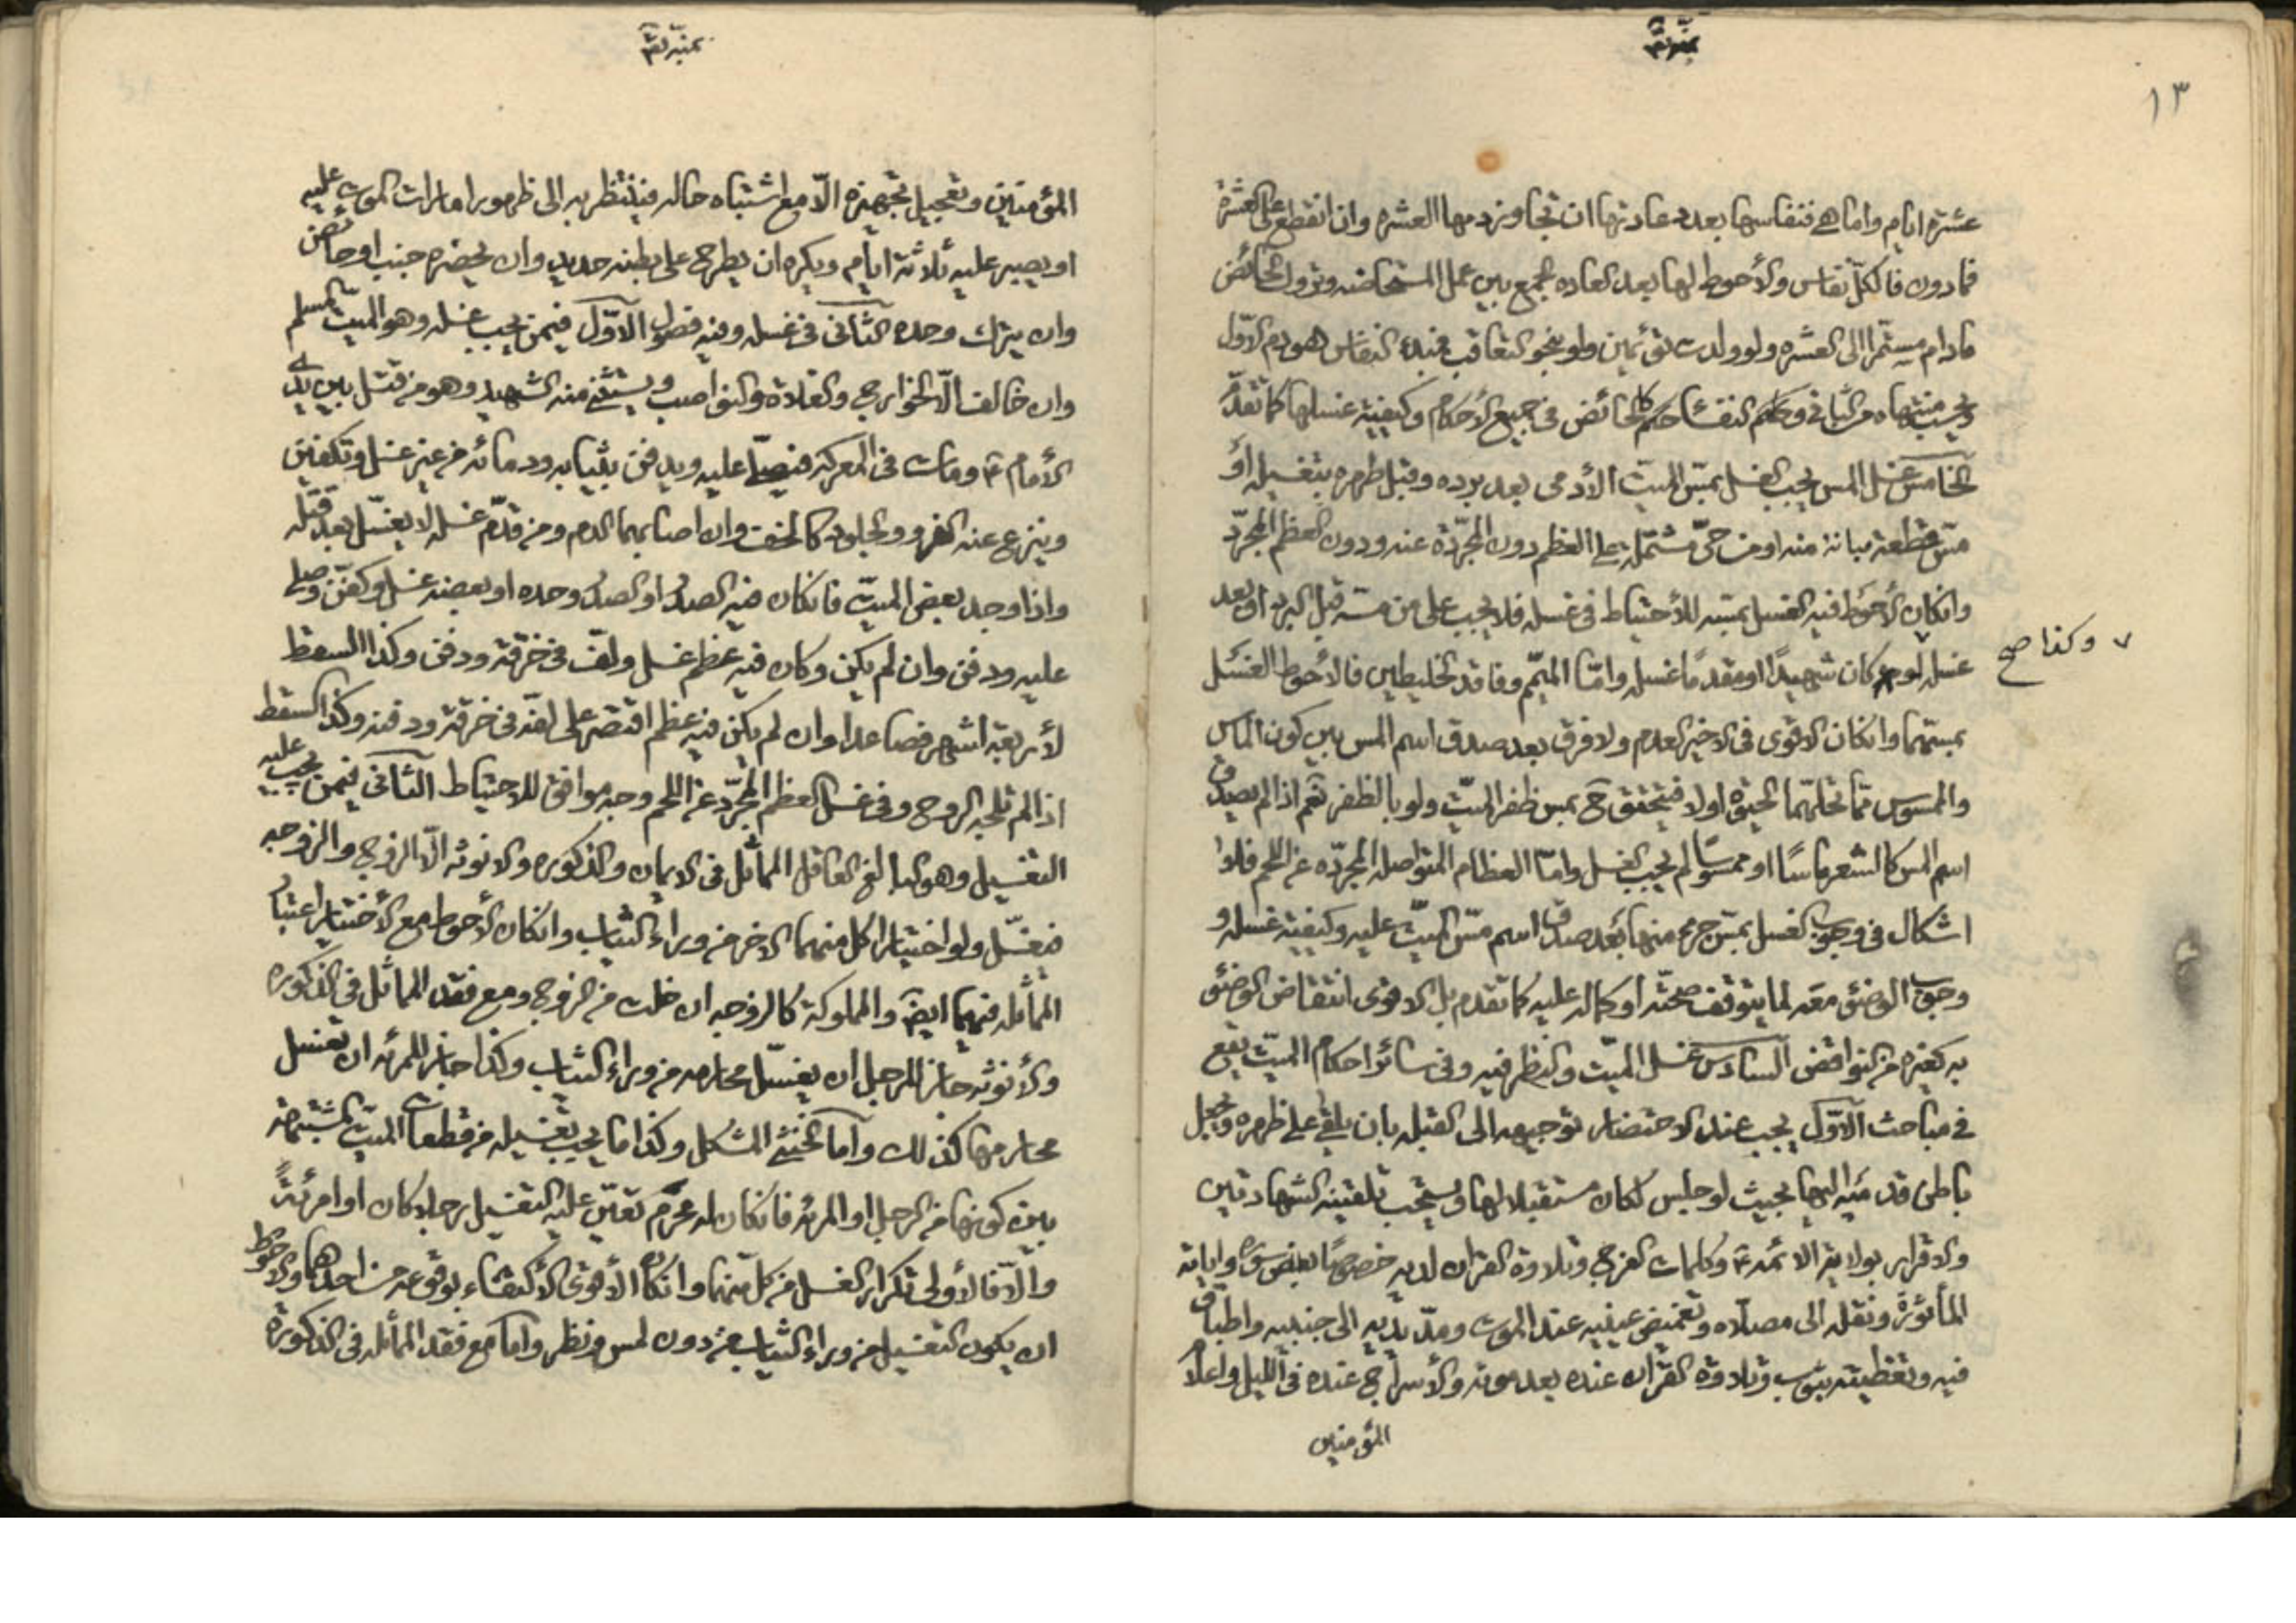 ١٣
عشرة ايام واما هي فنفاسها بعدد عادتها ان تجاوز دمها العشره وان انقطع على العشرة
فما دون فالكل نفاس والأحوط لها بعد العاده الجمع بين عمل المستحاضه وتروك الحائض
مادام مستمرا الى العشره ولو ولدت توئمين ولو بنحو التعاقب فمبدء النفاس هو دم الاوّل
ويحسب منتهاه من الثاني وحكم النفساء حكم الحائض في جميع الأحكام وكيفية غسلها كما تقدّم
الخامس غسل المس يجب الغسل بمسّ الميّت الآدمى بعد برده وقبل طهره بتغسيله او
مسّ قطعة مبانة منه او من حىّ مشتملة على العظم دون المجرّدة عنه ودون العظم المجرّد
وانكان الأحوط فيه الغسل بمسّه للأحتياط في غسله فلا يجب على من مسه قبل البرد او بعد
غسله لو كان شهيدًا او مقدمًا غسله وامّا الميمّم وفاقد الخليطين فالأحوط الغسل
٧ وكذا صح
بمسّهما وانكان الاقوى في الاخير العدم ولا فرق بعد صدق اسم المس بين كون الماس
والممسوس ممّا تحلّهما الحيوة اولا فيتحقق ح بمس ظفر الميّت ولو بالظفر نعم اذا لم يصدق
اسم المس كالشعر ماسًا او ممسوسًا لم يجب الغسل وامّا العظام المتواصله المجرّده عن اللحم فلا
اشكال في وجوب الغسل بمسّ جزء منها بعد صدق اسم مسّ الميّت عليه وكيفية غسله و
وجوب الوضوء معه لما يتوقف صحّته او كماله عليه كما تقدم بل الاقوى انتقاض الوضوء
به كغيره من النواقض السادس غسل الميّت والنظر فيه وفى سائر احكام الميّت يقع
في مباحث الاوّل يجب عند الاحتضار توجيهه الى القبله بان يلقى على ظهره ويجعل
باطن قدميه اليها بحيث لو جلس لكان مستقبلا لها ويستحب تلقينه الشهادتين
والاقرار بولاية الائمه ع وكلمات الفرج وتلاوة القران لديه خصوصًا بعض سوره واياته
المأثورة ونقله الى مصلّاه وتغميض عينيه عند الموت ومدّ يديه الى جنبيه واطباق
فيه وتغطيته بثوب وتلاوة القران عنده بعد موته والأسراج عنده في الليل واعلام
المؤمنين
المؤمنين وتعجيل تجهيزه الّا مع اشتباه حاله فينتظر به الى ظهور امارات الموت عليه
او يصبر عليه ثلاثة ايام ويكره ان يطرح على بطنه حديد وان يحضره جنب او حائض
وان يترك وحده الثانى في غسله وفيه فصول الاوّل فيمن يجب غسله وهو الميّت المسلم
وان خالف الّا الخوارج والغلاة والنواصب ويستثنى منه الشهيد وهو من قتل بين يدى
الأمام ع ومات في المعركه فيصلّى عليه ويدفن بثيابه ودمائه من غير غسل وتكفين
وينزع عنه الفرو والجلود كالخف وان اصابهما الدم ومن قدّم غسله لا يغسّل بعد قتله
واذا وجد بعض الميّت فانكان فيه الصدر او الصدر وحده او بعضه غسل وكفّن وصلى
عليه ودفن وان لم يكن وكان فيه عظم غسل ولفّ في خرقة ودفن وكذا السقط
لأربعة اشهر فصاعدا وان لم يكن فيه عظم اقتصر على لفّه في خرقة ودفنه وكذا السقط
اذا لم تلجه الروح وفى غسل العظم المجرّد عن اللحم وجه موافق للاحتياط الثانى فيمن يجب عليه
التغسيل وهو البالغ العاقل المماثل في الايمان والذكوره والانوثه الّا الزوج والزوجه
فيغسّل ولو اختيارا كل منهما الاخر من وراء الثياب وانكان الأحوط مع الأختيار اعتبار
المماثله فيهما ايضا والمملوكة كالزوجه ان خلت من الزوج ومع فقد المماثل في الذكوره
والأنوثه جاز للرجل ان يغسّل محارمه من وراء الثياب وكذا جاز للمرئه ان تغسل
محارمها كذلك وامّا الخنثى المشكل وكذا ما يجب تغسيله من قطعات الميّت المشتبهة
بين كونها من الرجل او المرئه فانكان له محرم تعيّن عليه التغسيل رجلا كان او امرئةً
والّا فالأولى تكرار الغسل من كل منهما وانكان الأقوى الأكتفاء بوقوعه من احدهما والاحوط
ان يكون التغسيل من وراء الثياب من دون لمس ونظر وامّا مع فقد المماثل في الذكورة